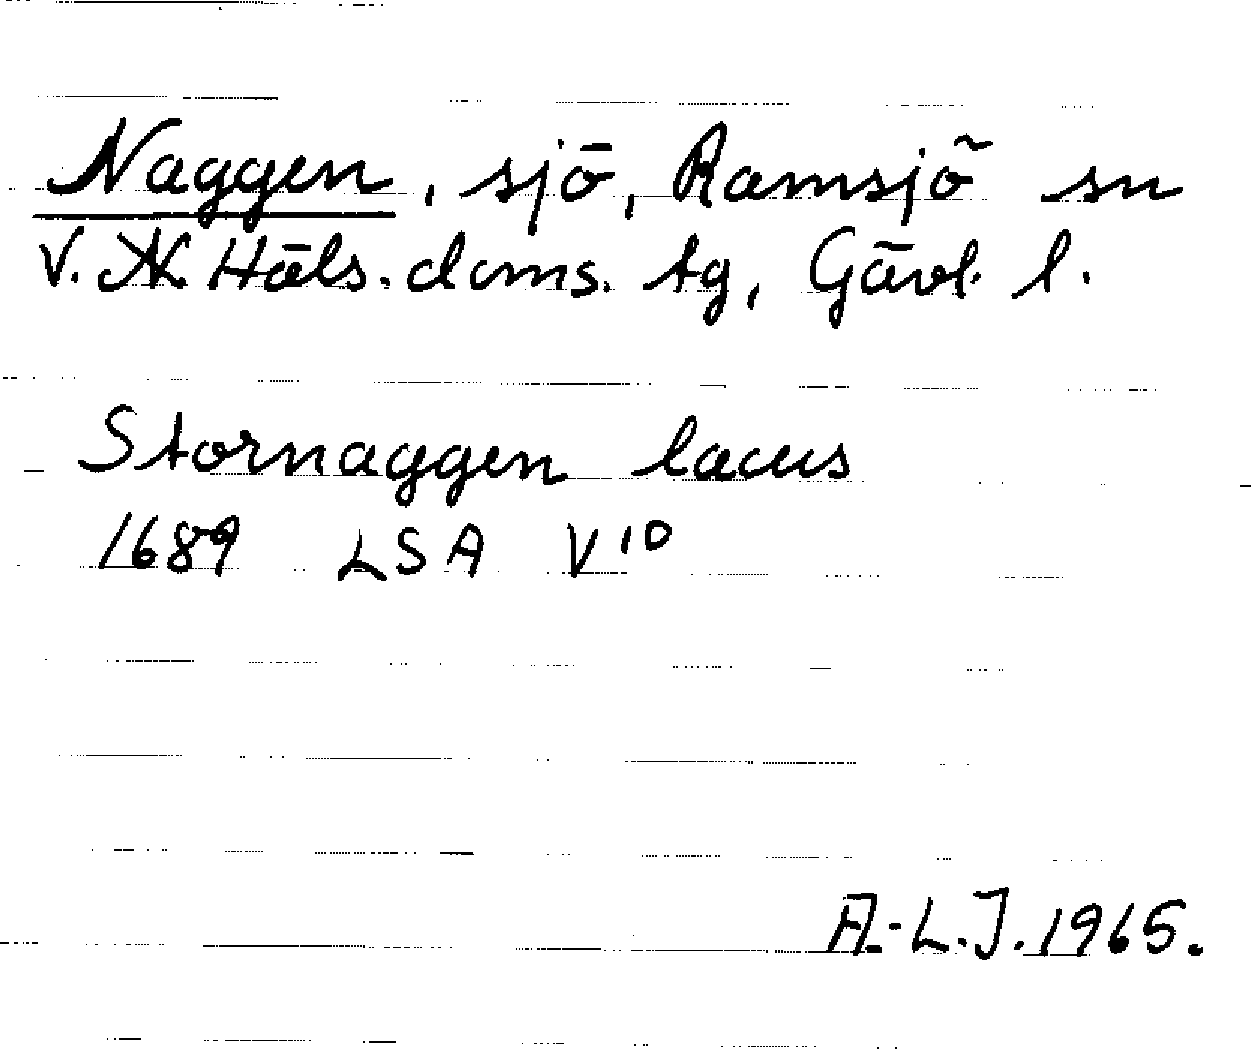 Naggen, sjö, Ramsjö sn
V. N Häls. doms. tg, Gävl. l.
Stornaggen lacus
1689 LSA V 10
A.-L.J. 1965.